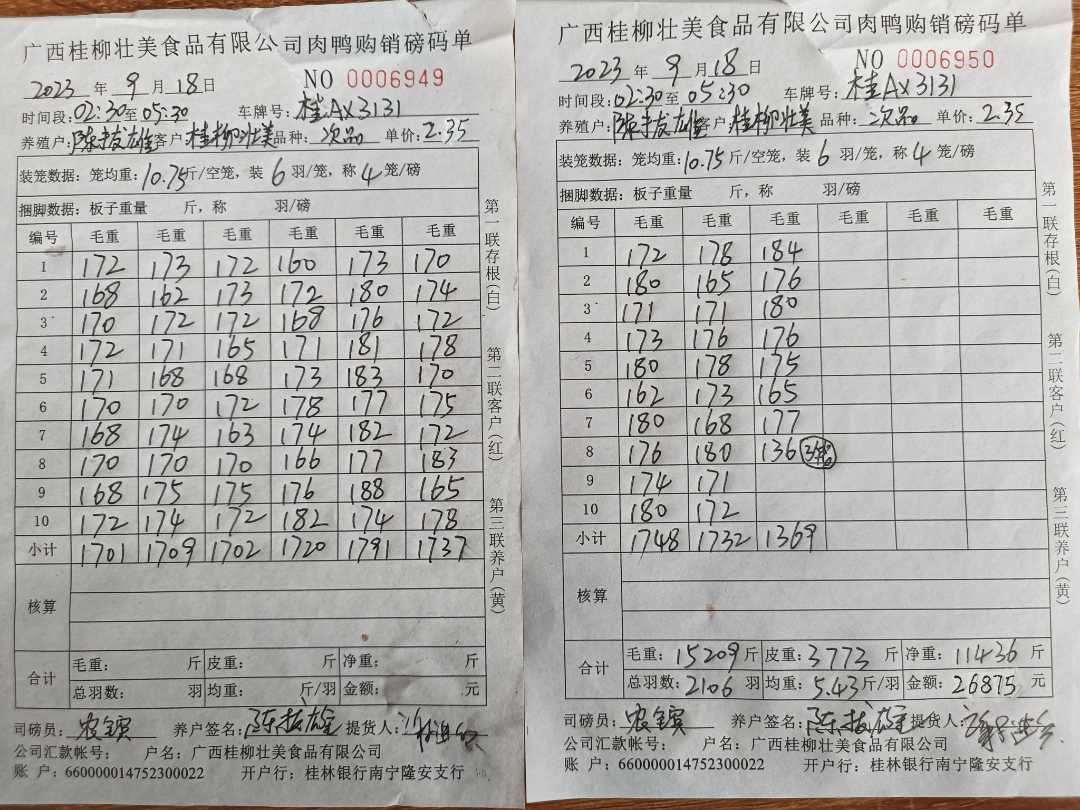 广西桂柳壮美食品有限公司肉鸭购销磅码单
2023 年 9 月 18 日 NO 0006949
时间段: 02:30 至 05:30 车牌号: 桂AX3131
养殖户: 陈拔雄 客户 桂柳壮美 品种: 次品 单价: 2.35
装笼数据: 笼均重: 10.75 斤/空笼, 装 6 羽/笼, 称 4 笼/磅
捆脚数据: 板子重量 斤, 称 羽/磅
编号 毛重 毛重 毛重 毛重 毛重 毛重
1 172 173 172 160 173 170
2 168 162 173 172 180 174
3 170 172 172 168 176 172
4 172 171 165 171 181 178
5 171 168 168 173 183 170
6 170 170 172 178 177 175
7 168 174 163 174 182 172
8 170 170 170 166 177 183
9 168 175 175 176 188 165
10 172 174 172 182 174 178
小计 1701 1709 1702 1720 1791 1737
核算
合计 毛重: 斤 皮重: 斤 净重: 斤
总羽数: 羽 均重: 斤/羽 金额: 元
司磅员: 农 养户签名: 陈拔雄 提货人:
公司汇款帐号: 户名: 广西桂柳壮美食品有限公司
账 户: 660000014752300022 开户行: 桂林银行南宁隆安支行
第一联存根(白) 第二联客户(红) 第三联养户(黄)
广西桂柳壮美食品有限公司肉鸭购销磅码单
2023 年 9 月 18 日 NO 0006950
时间段: 02:30 至 05:30 车牌号: 桂AX3131
养殖户: 陈拔雄 客户 桂柳壮美 品种: 次品 单价: 2.35
装笼数据: 笼均重: 10.75 斤/空笼, 装 6 羽/笼, 称 4 笼/磅
捆脚数据: 板子重量 斤, 称 羽/磅
编号 毛重 毛重 毛重 毛重 毛重 毛重
1 172 178 184
2 180 165 176
3 171 171 180
4 173 176 176
5 180 178 175
6 162 173 165
7 180 168 177
8 176 180 136 3笼
9 174 171
10 180 172
小计 1748 1732 1369
核算
合计 毛重: 15209 斤 皮重: 3773 斤 净重: 11436 斤
总羽数: 2106 羽 均重: 5.43 斤/羽 金额: 26875 元
司磅员: 农 养户签名: 陈拔雄 提货人:
公司汇款帐号: 户名: 广西桂柳壮美食品有限公司
账 户: 660000014752300022 开户行: 桂林银行南宁隆安支行
第一联存根(白) 第二联客户(红) 第三联养户(黄)